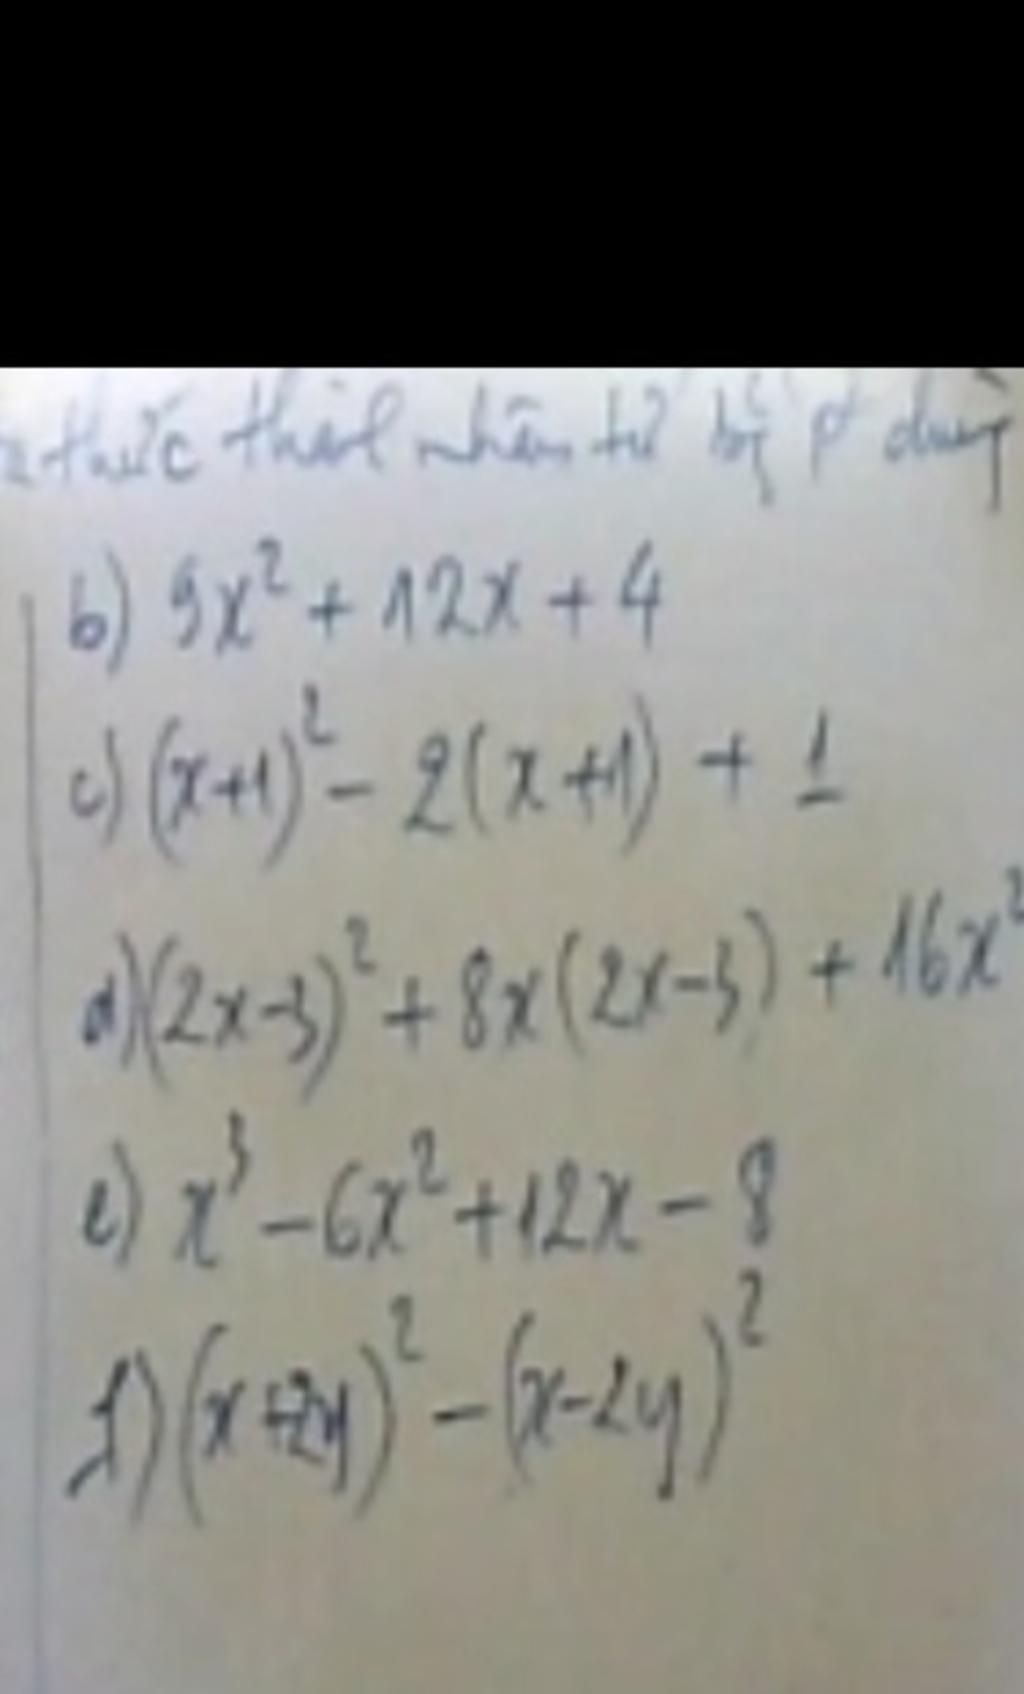 thức thành nhân tử bằng p² dùng
b) 9x² + 12x + 4
c) (x+1)² - 2(x+1) + 1
d) (2x-3)² + 8x(2x-3) + 16x²
e) x³ - 6x² + 12x - 8
f) (x+2y)² - (x-2y)²